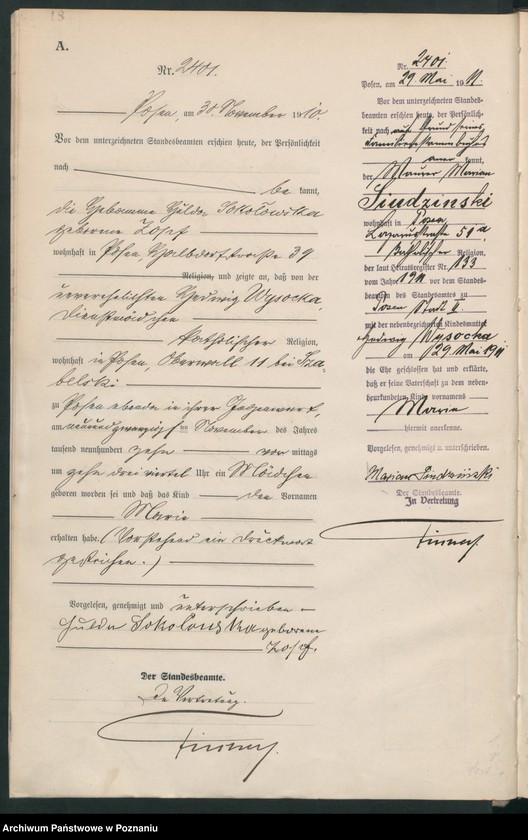 18
A.
Nr. 2401.
Posen, am 30. November 1910.
Vor dem unterzeichneten Standesbeamten erschien heute, der Persönlichkeit
nach be kannt,
die Hebamme Hulda Sokolowska
geborene Zosef
wohnhaft in Posen Halbdorfstraße 39
Religion, und zeigte an, daß von der
unverehelichten Hedwig Wysocka,
Dienstmädchen
katholischer Religion,
wohnhaft in Posen, Oberwall 11 bei Sza-
belski
zu Posen ebenda in ihrer Gegenwart,
am neunundzwanzigsten November des Jahres
tausend neunhundert zehn vor mittags
um zehn drei viertel Uhr ein Mädchen
geboren worden sei und daß das Kind den Vornamen
Marie
erhalten habe. (Vorstehend ein Druckwort
gestrichen.)
Vorgelesen, genehmigt und unterschrieben
Hulda Sokolowska geborene
Zosef.
Der Standesbeamte.
In Vertretung.
Nr. 2401
Posen, am 29. Mai 1911.
Vor dem unterzeichneten Standes-
beamten erschien heute, der Persönlich-
keit nach auf Grund seines
Familienstammbuches
aner kannt,
der Maurer Marian
Siudzinski
wohnhaft in Posen
51a
katholischer Religion,
der laut Heiratsregister Nr. 133
vom Jahre 1911 vor dem Standes-
beamten des Standesamtes zu
Posen Stadt II.
mit der nebenbezeichneten Kindesmutter
Hedwig Wysocka
am 29. Mai 1911
die Ehe geschlossen hat und erklärte,
daß er seine Vaterschaft zu dem neben-
beurkundeten Kind vornamens
Marie
hiermit anerkenne.
Vorgelesen, genehmigt u. unterschrieben.
Marian Siudzinski
Der Standesbeamte.
In Vertretung
Archiwum Państwowe w Poznaniu
szukajwarchiwach.gov.pl